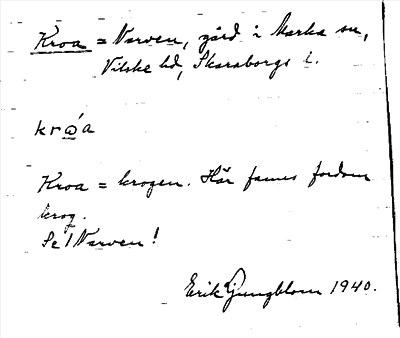 Kroa = Narven, gård i Marka sn,
Vilske hd, Skaraborgs l.
kroa
Kroa = krogen. Här fanns fordom
krog.
Se / Narven!
Erik Ljungblom 1940.